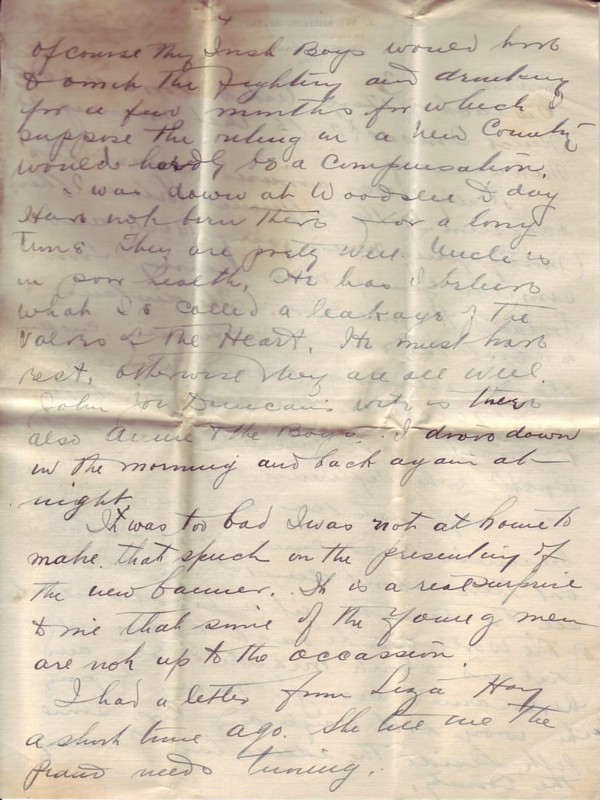 4
of course My Irish Boys would have
to omit the Fighting and drinking
for a few months for which I
suppose the ruling in a New Country
would hardly be a compensation.
I was down at Woodslee to day
Have not been there for a long
time They are prety well. Uncle is
in poor health, He has I believe
what is called a leakage of the
valves of the Heart, He must have
rest, otherwise they are all well.
John Duncan's wife is there
also Annie & the Boys. I drove down
in the morning and back again at
night.
It was too bad I was not at home to
make that speech on the presenting of
the new banner. It is a real surprise
to me that some of the young men
are not up to the occassion.
I had a letter from Liza Hay
a short time ago. She me the
piano needs tuning.